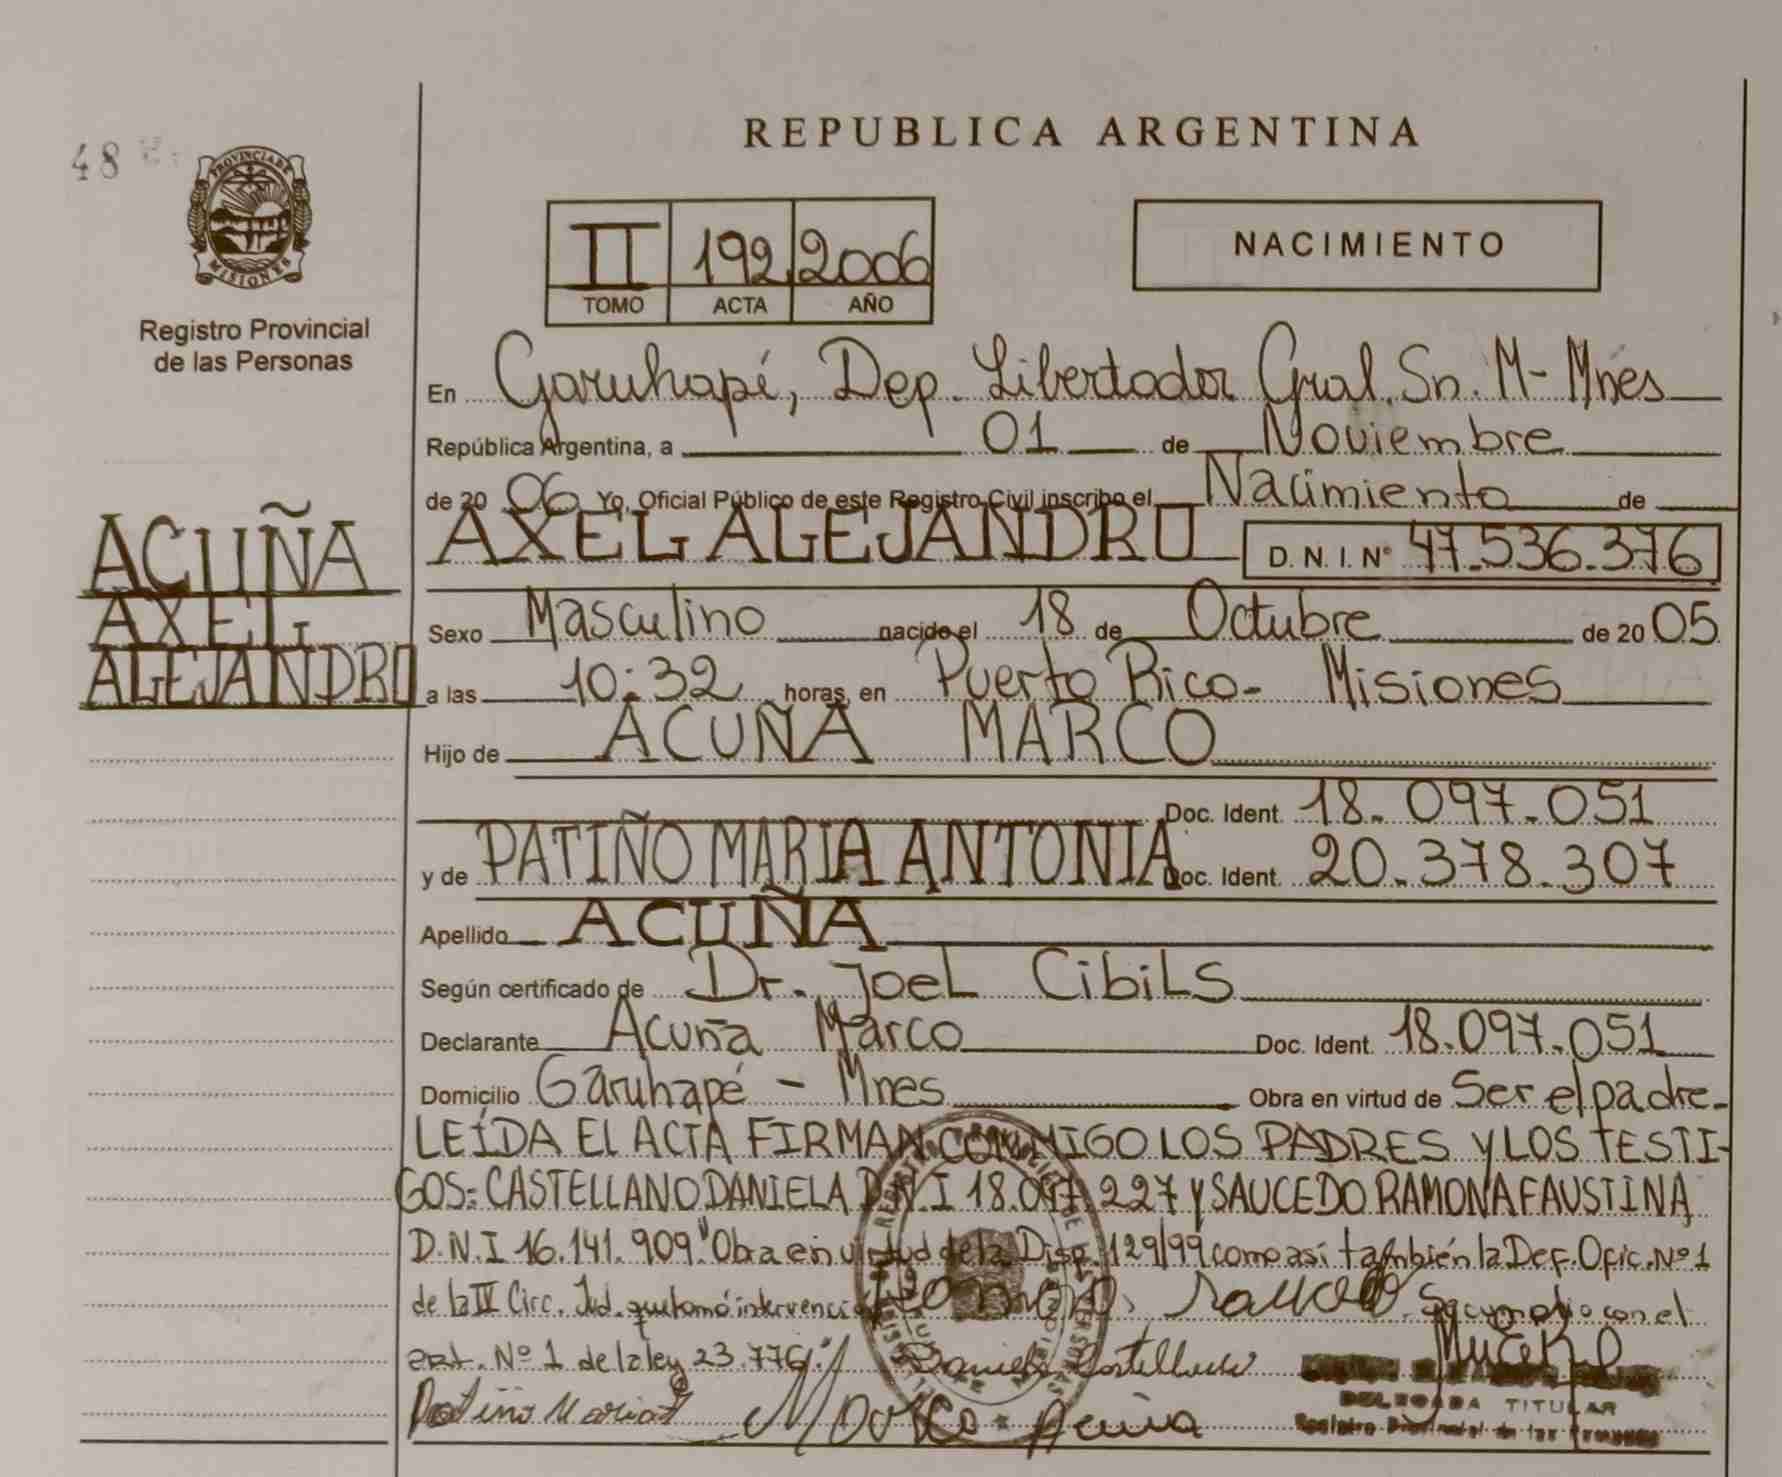 REPUBLICA ARGENTINA
48
PROVINCIA DE
MISIONES
Registro Provincial
de las Personas
II 192 2006
TOMO ACTA AÑO
NACIMIENTO
En Garuhapé, Dep. Libertador Gral. Sn. M- Mnes
República Argentina, a 01 de Noviembre
de 20 06 Yo, Oficial Público de este Registro Civil inscribo el Nacimiento de
ACUÑA
AXEL
ALEJANDRO
AXEL ALEJANDRO D. N. I. Nº 47.536.376
Sexo Masculino nacido el 18 de Octubre de 20 05
a las 10:32 horas, en Puerto Rico- Misiones
Hijo de ACUÑA MARCO
Doc. Ident. 18.097.051
y de PATIÑO MARIA ANTONIA Doc. Ident. 20.378.307
Apellido ACUÑA
Según certificado de Dr. Joel Cibils
Declarante Acuña Marco Doc. Ident. 18.097.051
Domicilio Garuhapé - Mnes Obra en virtud de Ser el padre-
LEÍDA EL ACTA FIRMAN CONMIGO LOS PADRES Y LOS TESTI-
GOS: CASTELLANO DANIELA D.N.I 18.097.227 Y SAUCEDO RAMONA FAUSTINA
D.N.I 16.141.909 "Obra en virtud de la Disp. 129/99 como así también la Def. Ofic. Nº 1
de la IV Circ. Jud. que tomó intervención con el
art. Nº 1 de la ley 23.776."
Daniela Castellano
Patiño Maria Marco Acuña
DELEGADA TITULAR
Registro Provincial de las Personas